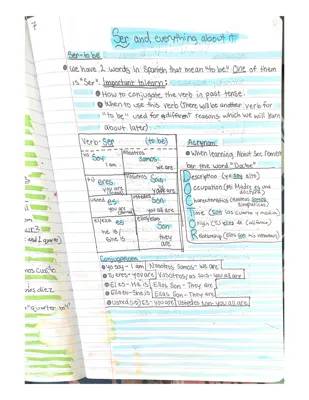 7
Ser and everything about it!
Ser-to be
We have 2 words in Spanish that mean "to be." One of them
is "Ser". Important to learn:
How to conjugate the verb in past tense.
When to use this verb (there will be another verb for
"to be" used for different reasons which we will learn
about later).
Verb: Ser (to be)
yo Soy- I am
nosotros Somos- we are
tú eres- you are
vosotros Sois- you all are
usted es- you are (formal)
ustedes Son- you all are
él/ella es he is/ she is
ellos/ellas Son- they are
Acronym:
When learning about Ser remem-
ber the word "Doctor"
Description (yo soy alto)
Occupation (mi Madre es una
Characteristics
Time (Son las cuatro y media)
Origin (Él es de California)
Relationship (Ellas son mis hermanas)
Conjugations
yo soy - I am Nosotros Somos- we are
Tú eres- you are Vosotros/as sois- you all are
Él es - He is Ellos Son - They are
Ella es-She is Ellas Son - They are
Usted es - you are Ustedes son- you all are